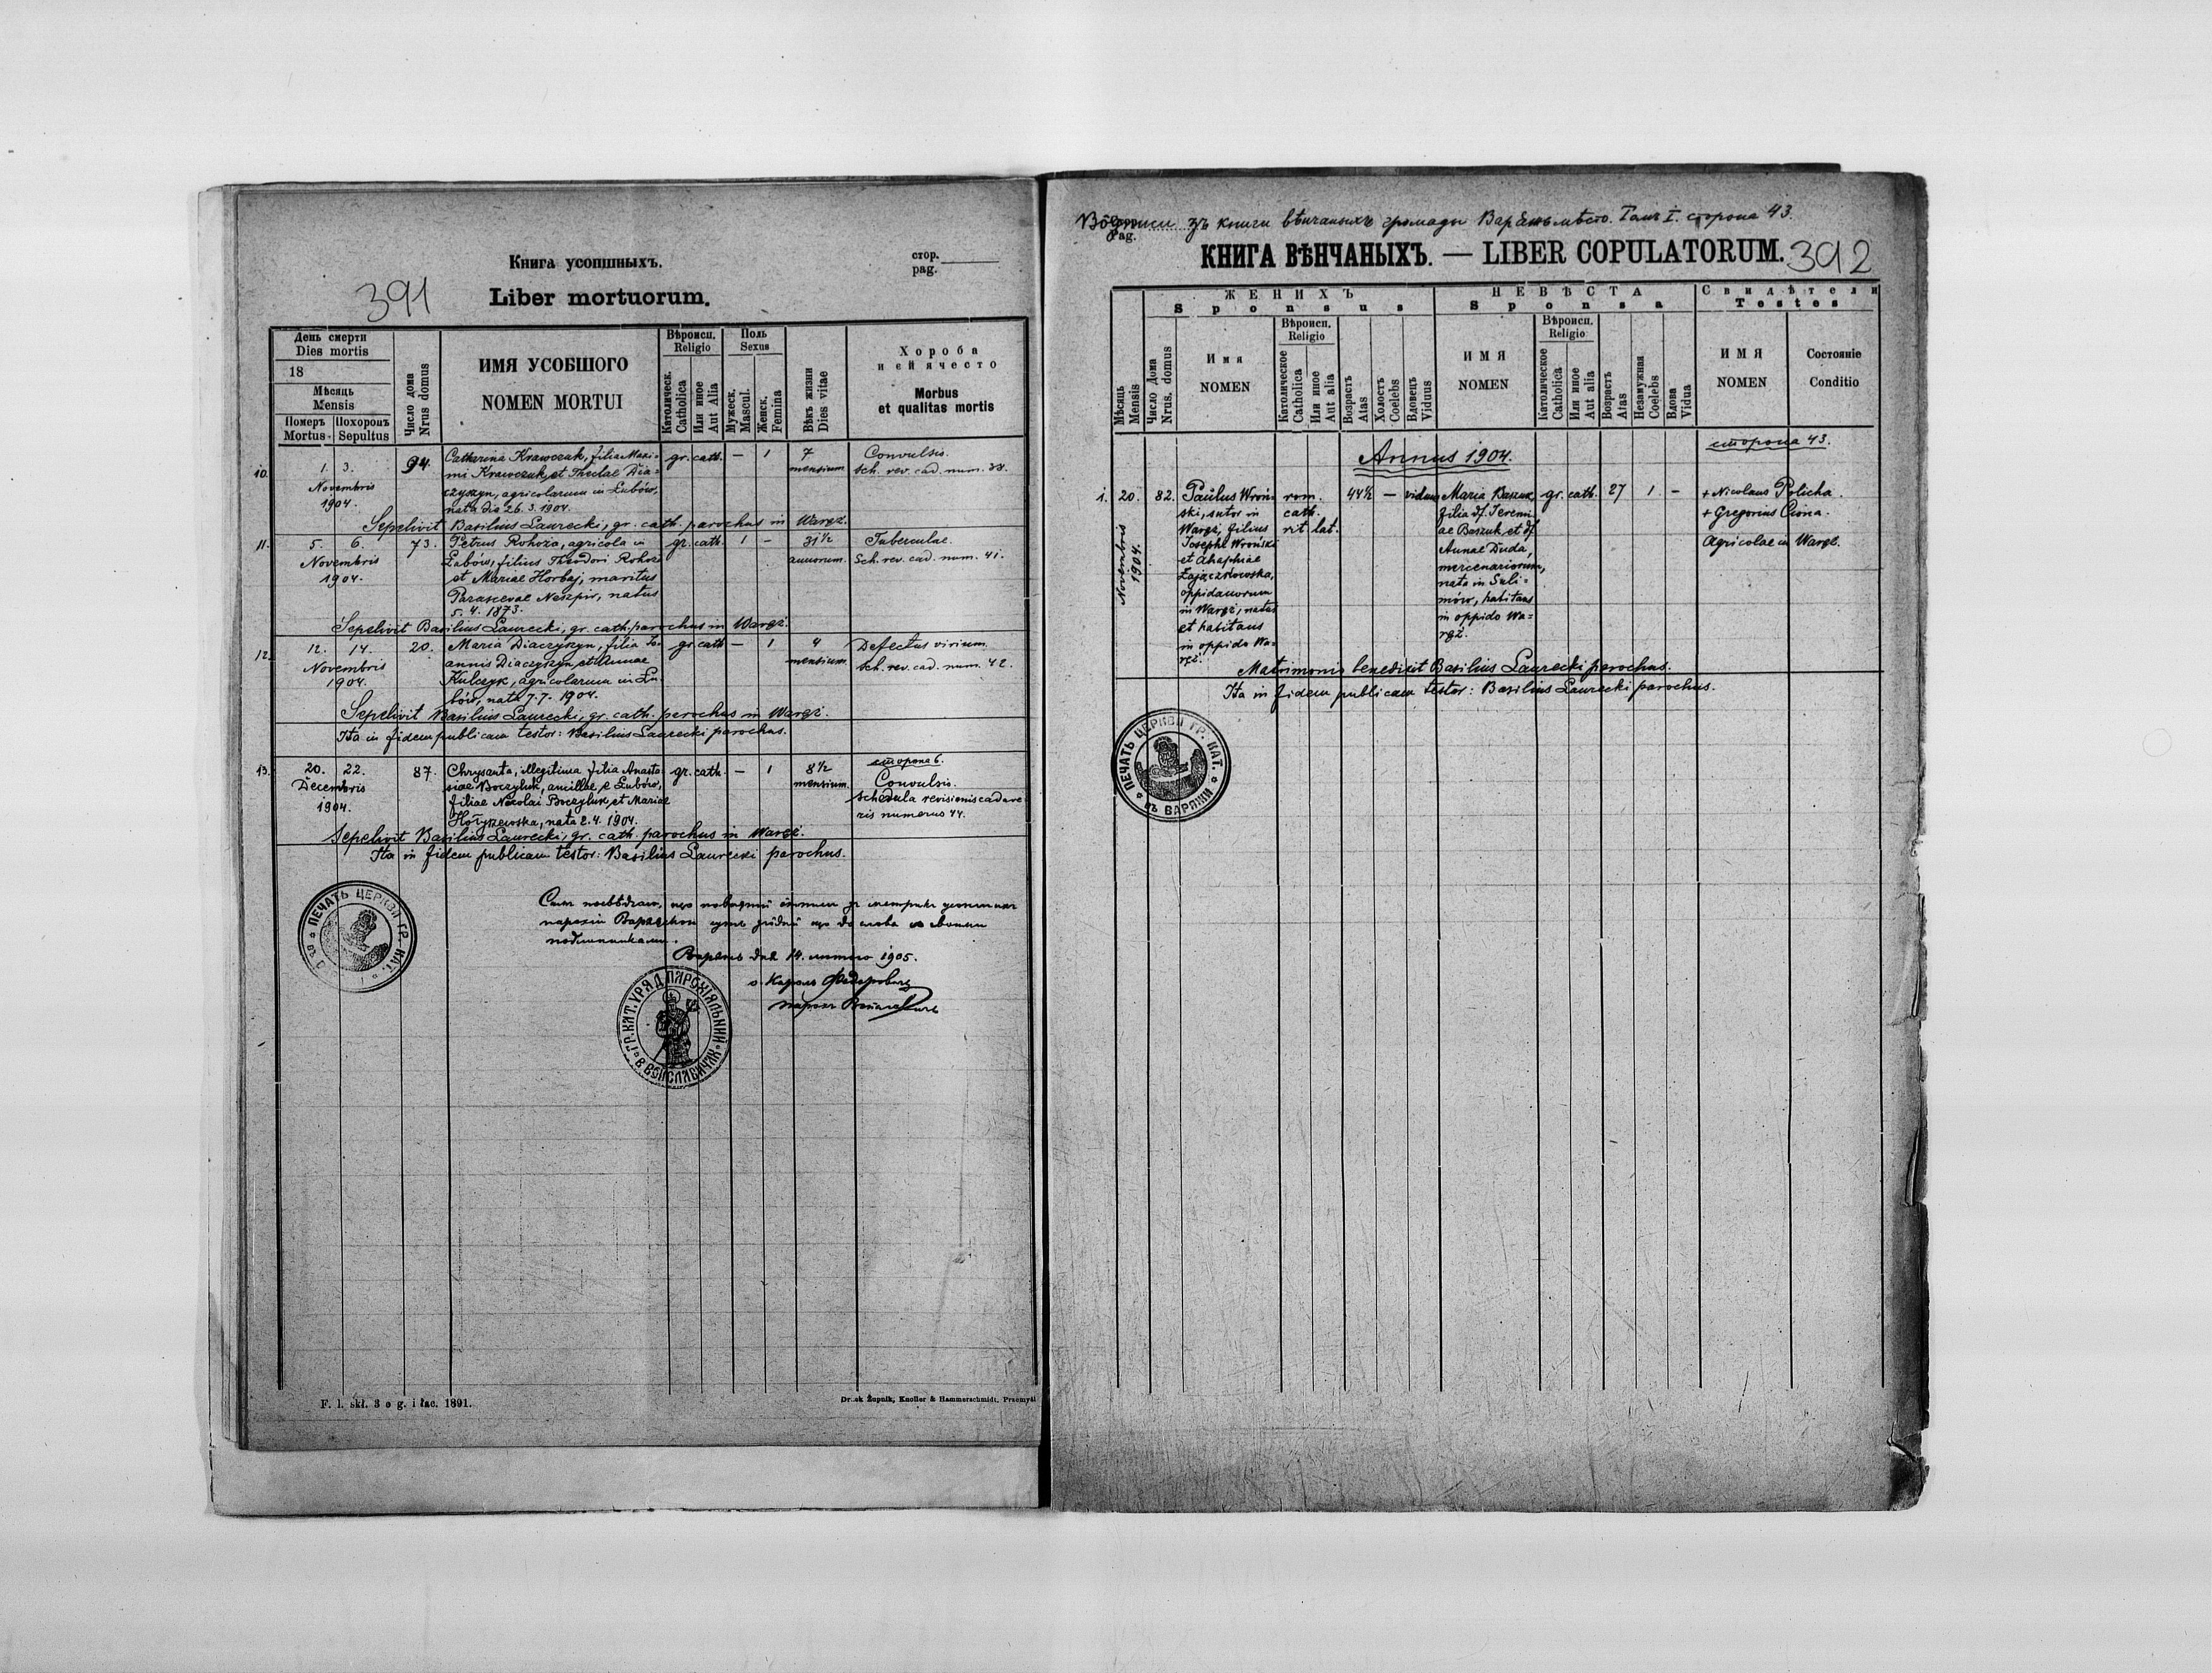 Книга усопшныхъ.
стор.
pag.
391
Liber mortuorum.
День смерти
Dies mortis
18
Мѣсяць
Mensis
Померъ
Mortus
Похоронъ
Sepultus
Число дома
Nrus domus
ИМЯ УСОБШОГО
NOMEN MORTUI
Вѣроисп.
Religio
Католическ.
Catholica
Или иное
Aut Alia
Поль
Sexus
Мужеск.
Mascul.
Женск.
Femina
Вѣкъ жизни
Dies vitae
Хороба
и ей ячесто
Morbus
et qualitas mortis
10. 1. 3. 94. Catharina Krawczuk, filia Maxi- gr. cath. — 1 7 Convulsis.
mi Krawczuk et Theclae Dia= mensium Sch. rev. cad. num. 38.
Novembris czyszyn, agricolarum in Łubów,
1904. nata die 26. 3. 1904.
Sepelivit Basilius Laurecki, gr. cath. parochus in Waręż.
11. 5. 6. 73. Petrus Rohoza, agricola in gr. cath. 1 — 31 ½ Tuberculae.
Novembris Łubów, filius Theodori Rohoza annorum. Sch. rev. cad. num. 41.
1904. et Mariae Horbaj, maritus
Parascevae Neszpir, natus
5. 4. 1873.
Sepelivit Basilius Laurecki, gr. cath. parochus in Waręż.
12. 12. 14. 20. Maria Diaczyszyn, filia Jo- gr. cath — 1 4 Defectus virium.
Novembris annis Diaczyszyn et Annae mensium. Sch. rev. cad. num. 42.
1904. Kulczyk, agricolarum in Łu-
bów, nata 7. 7. 1904.
Sepelivit Basilius Laurecki, gr. cath. parochus in Waręż.
Ita in fidem publicam testor: Basilius Laurecki parochus.
сторона 6.
13. 20. 22. 87. Chrysanta, illegitima filia Anasta- gr. cath. — 1 8 ½ Convulsis.
Decembris siae Boczyluk, ancillae, e Łubów, mensium. Schedula revisionis cadave
1904. filiae Nicolai Boczyluk et Mariae ris numerus 44.
Hołyszewska, nata 2. 4. 1904.
Sepelivit Basilius Laurecki, gr. cath. parochus in Waręż.
Ita in fidem publicam testor: Basilius Laurecki parochus.
ПЕЧАТЬ ЦЕРКВИ ГР. КАТ.
1905.
парох
ГР. КАТ. УРЯД ПАРОХІЯЛЬНИЙ В ВОЙСЛАВИЧАХ
F. l. skł. 3 o g. i łac. 1891.
Druk Żupnik, Knoller & Hammerschmidt, Przemyśl
зъ книги вѣнчаныхъ громады Варяжъ мѣсто. Томъ I. сторона 43.
Pag.
КНИГА ВѢНЧАНЫХЪ. — LIBER COPULATORUM. 392
Мѣсяць
Mensis
ЖЕНИХЪ
Sponsus
Число Дома
Nrus. domus
Имя
NOMEN
Вѣроисп.
Religio
Католическое
Catholica
Или иное
Aut alia
Возрастъ
Atas
Холость
Coelebs
Вдовець
Viduus
НЕВѢСТА
Sponsa
ИМЯ
NOMEN
Вѣроисп.
Religio
Католическое
Catholica
Или иное
Aut alia
Возрастъ
Atas
Незамужная
Coelebs
Вдова
Vidua
Свидѣтели
Testes
ИМЯ
NOMEN
Состояніе
Conditio
Annus 1904.
сторона 43.
1. 20. 82. Paulus Wroń- rom. 44½ — viduus Maria Baszuk gr. cath. 27 1 — + Nicolaus Policha.
ski, sutor in cath. filia df. Jeremi- + Gregorius Ciona.
Waręż, filius rit lat. ae Baszuk et df. Agricolae in Waręż.
Novembris
1904.
Josephi Wroński Annae Duda,
et Ahaphiae mercenariorum,
Zajączkowska, nata in Suli-
oppidanorum mów, habitans
in Waręż, natus in oppido Wa=
et habitans ręż.
in oppido Wa-
ręż.
Matrimonio benedixit Basilius Laurecki parochus.
Ita in fidem publicam testor: Basilius Laurecki parochus.
ПЕЧАТЬ ЦЕРКВИ ГР. КАТ. ВЪ ВАРЯЖИ